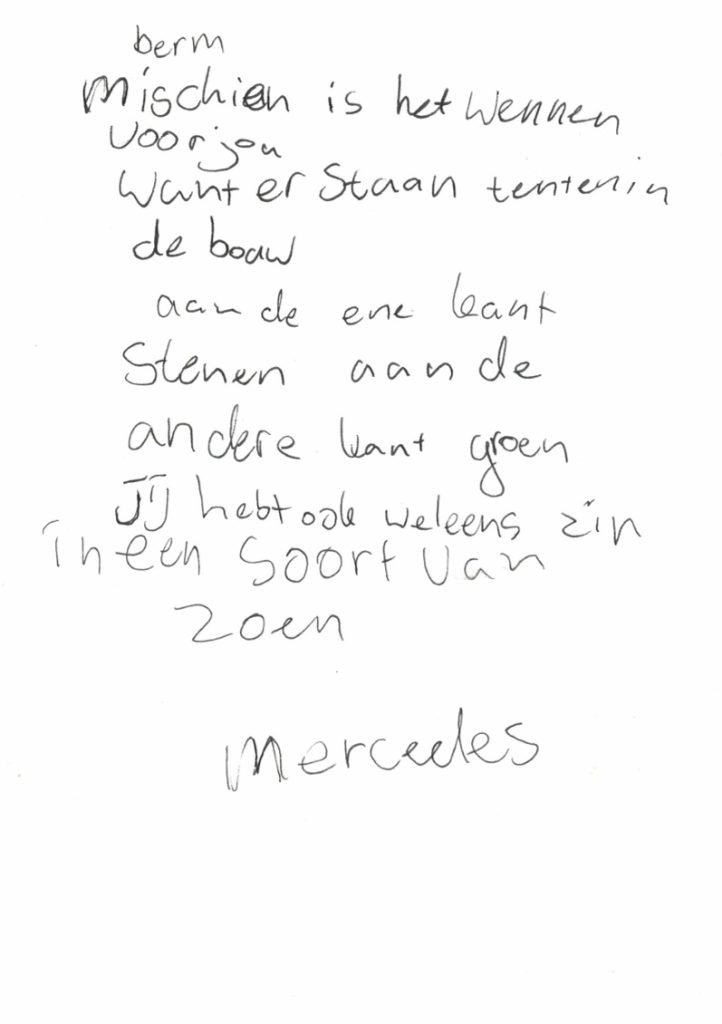 berm
Mischien is het wennen
voor jou
want er staan tenten in
de bouw
aan de ene kant
Stenen aan de
andere kant groen
Jij hebt ook weleens zin
in een soort van
zoen
Mercedes